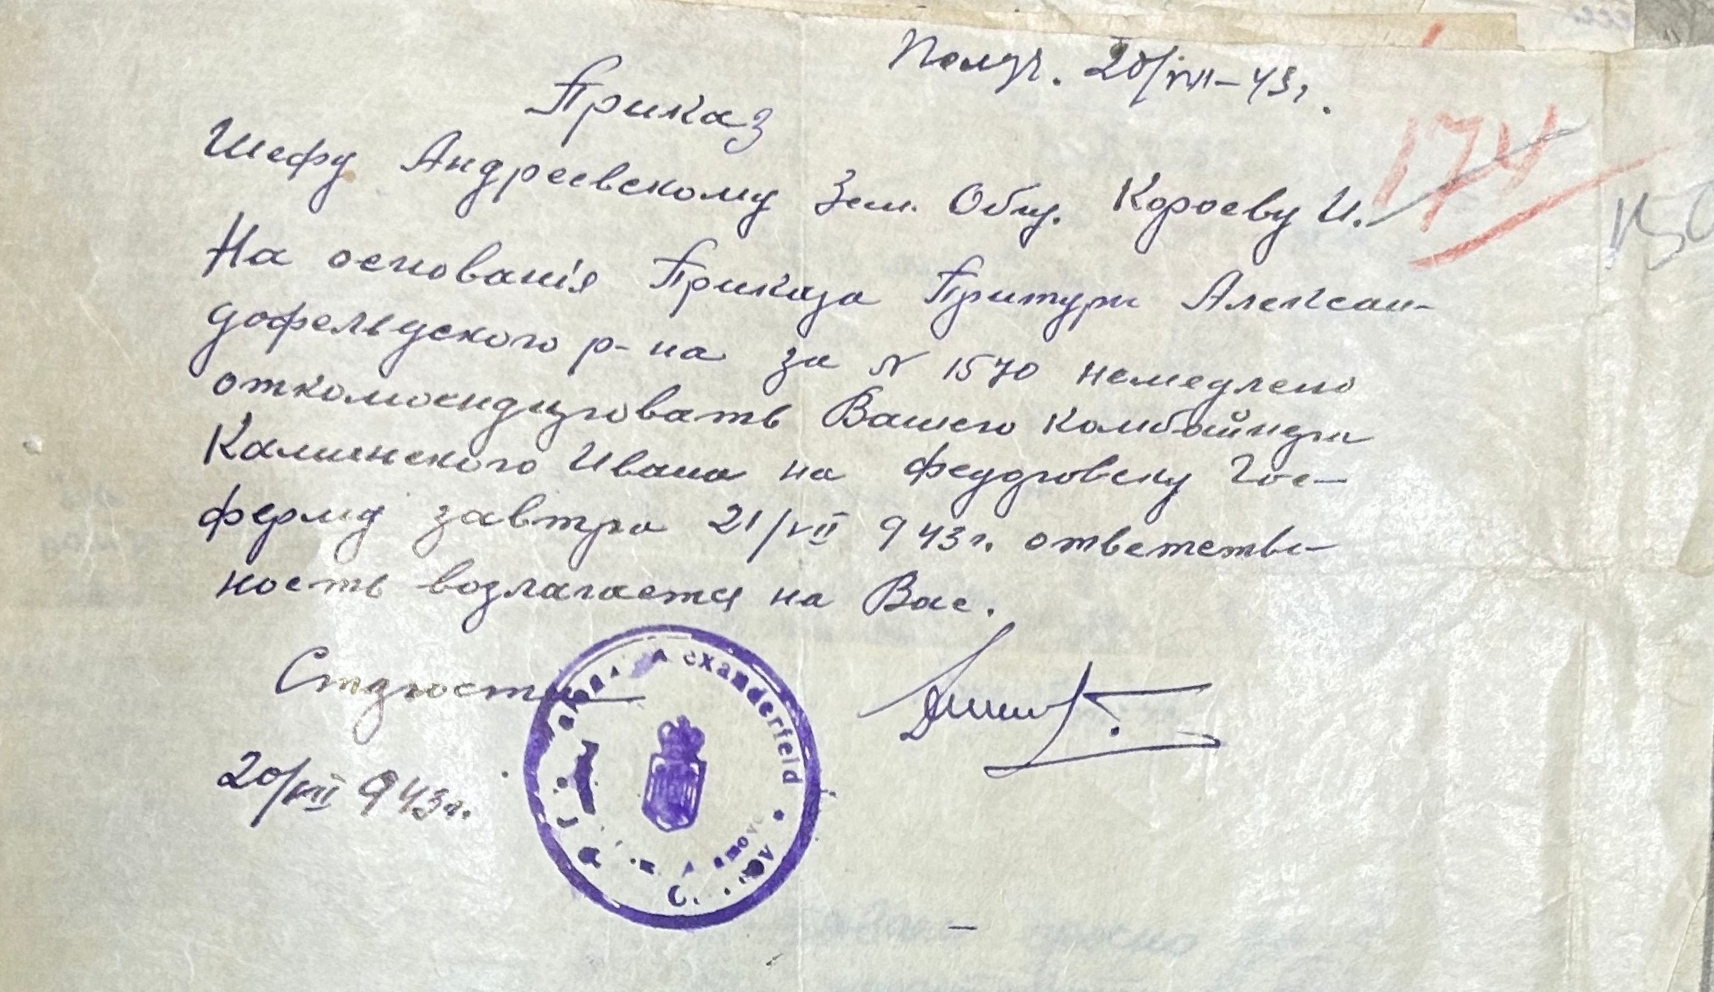 Получ. 20/VII-43г.
Приказ
174
Шефу Андреевскому Зем. Общ. Короеву И.
150
На основанія Приказа Притури Алексан-
дофельдского р-на за N 1570 немедлено
откомондировать Вашего комбайнера
Калинского Ивана на Феддровску Гос-
ферму завтра 21/VII 943г. ответстве-
ность возлагается на Вас.
Староста
Alexanderfeld
20/VII 943г.